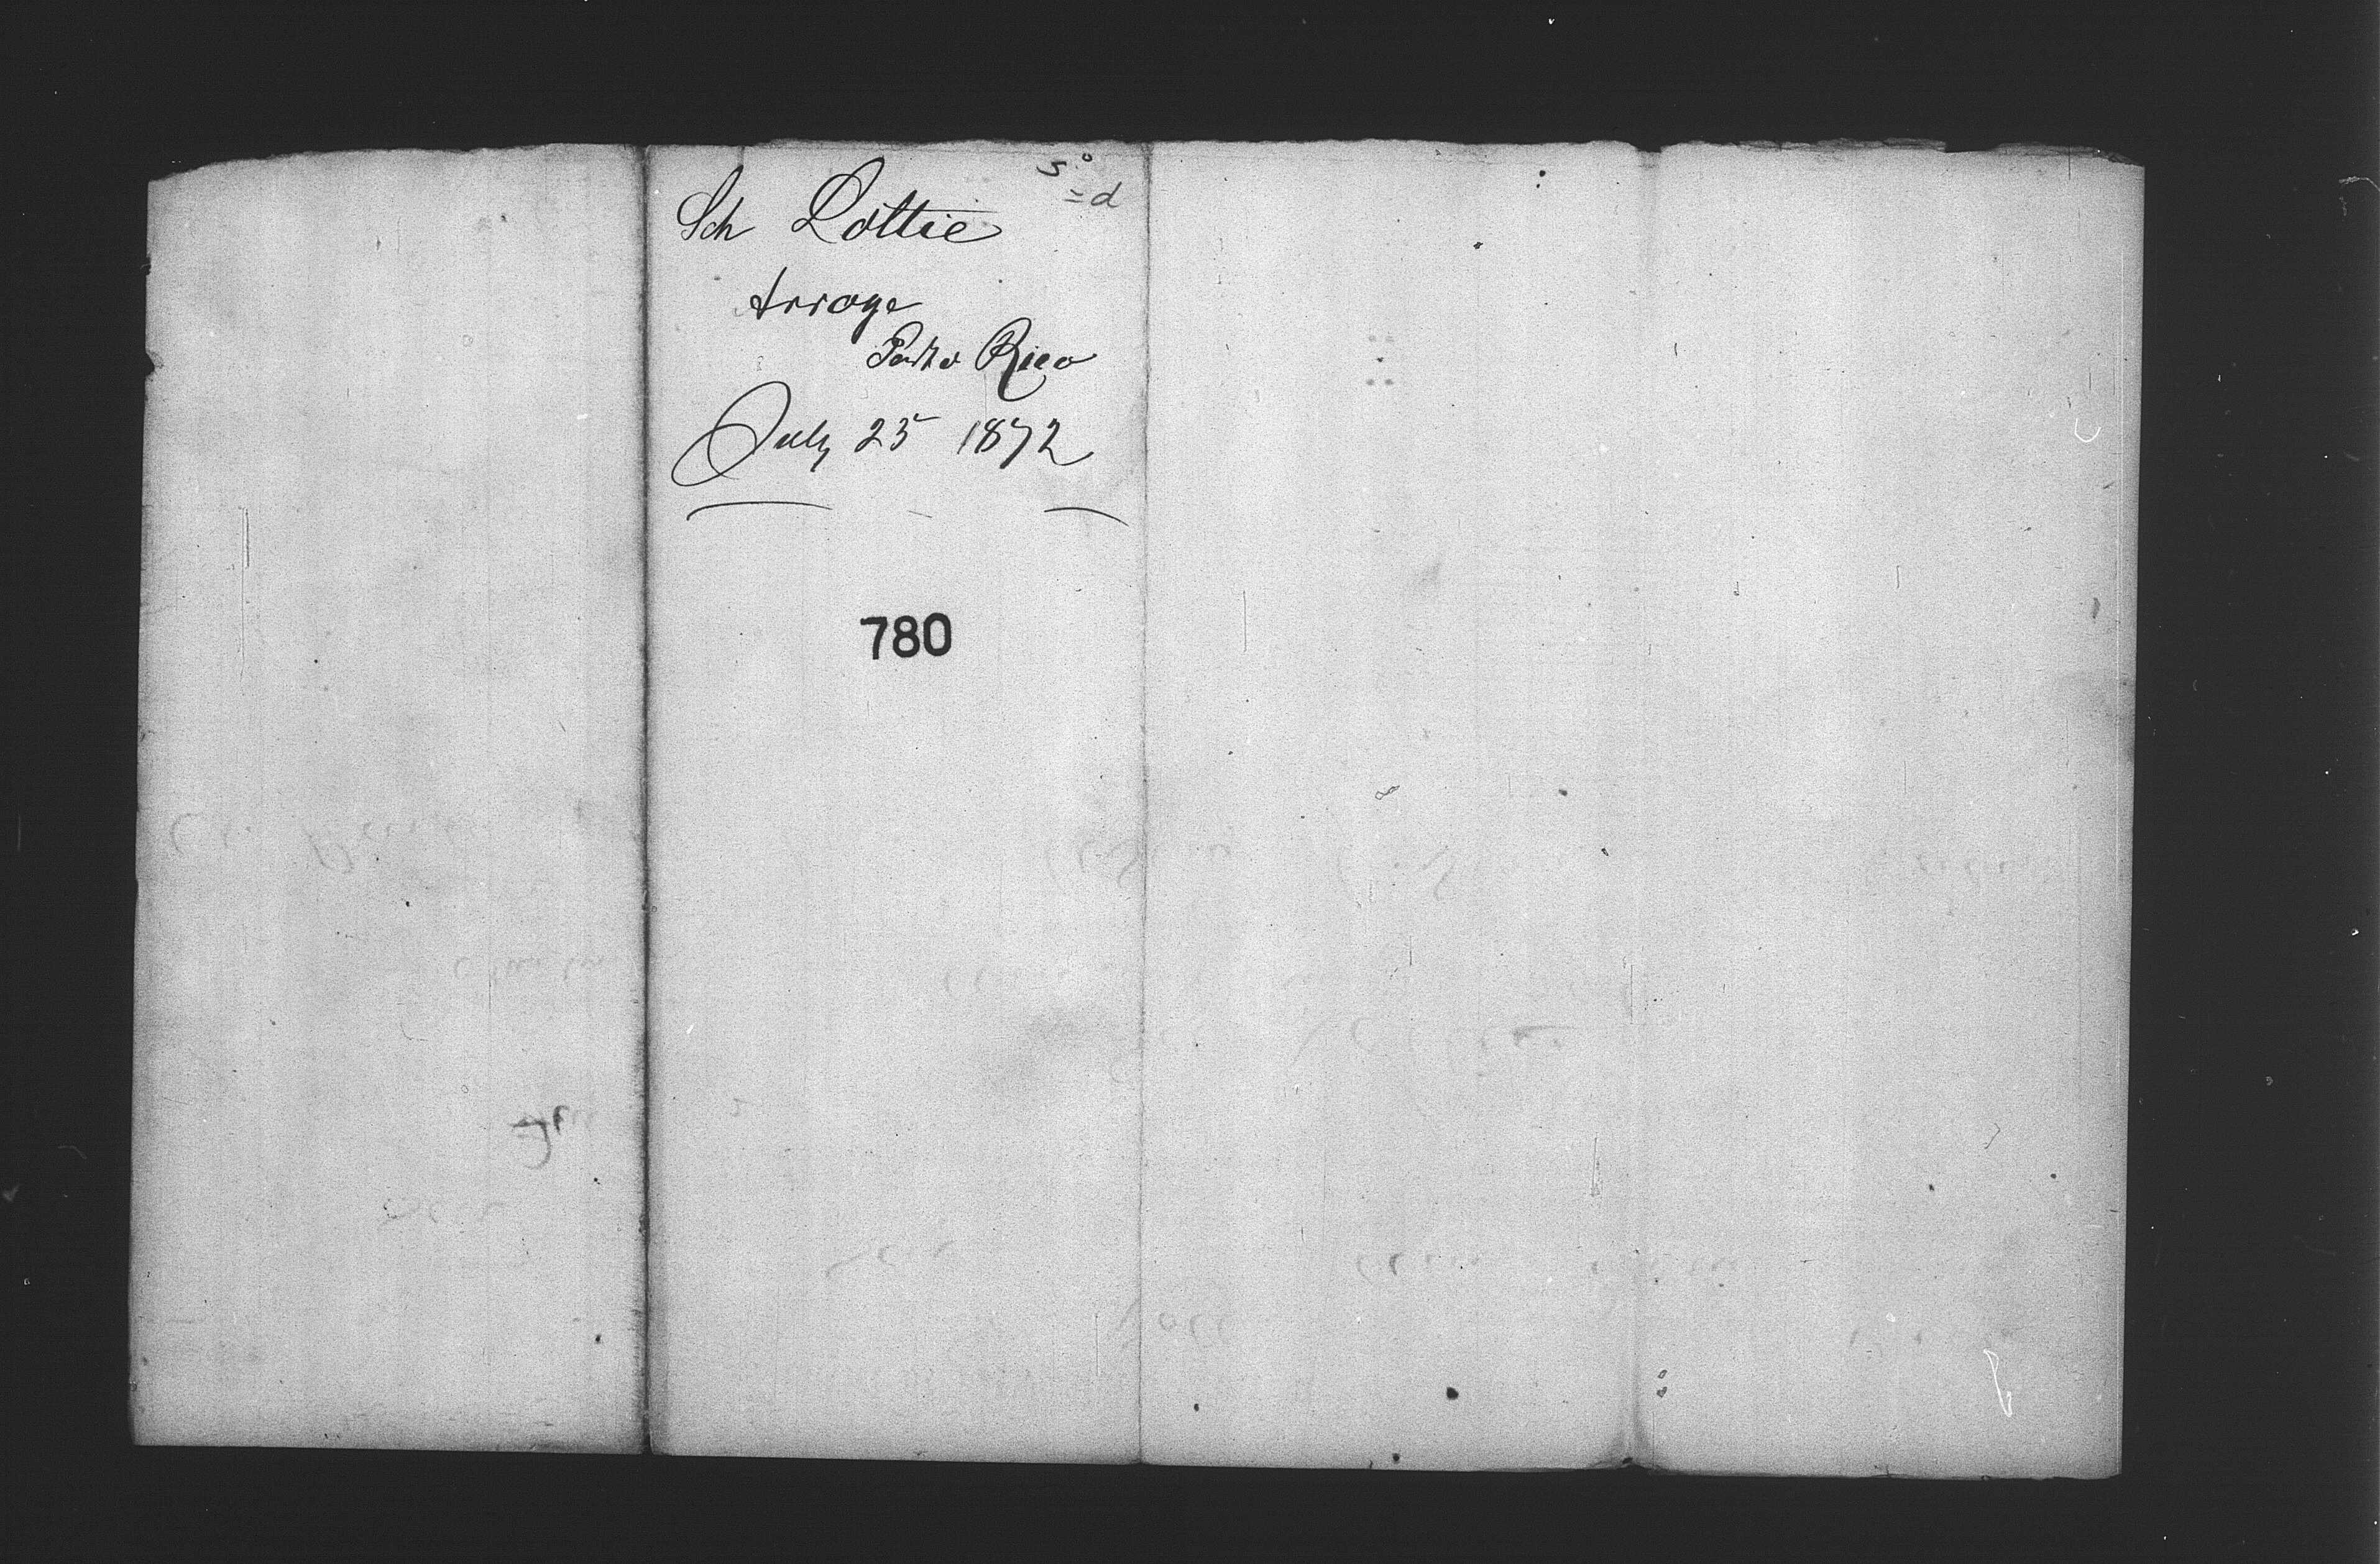 Sch Lottie
Arroyo
Porto Rico
July 25 1872
780